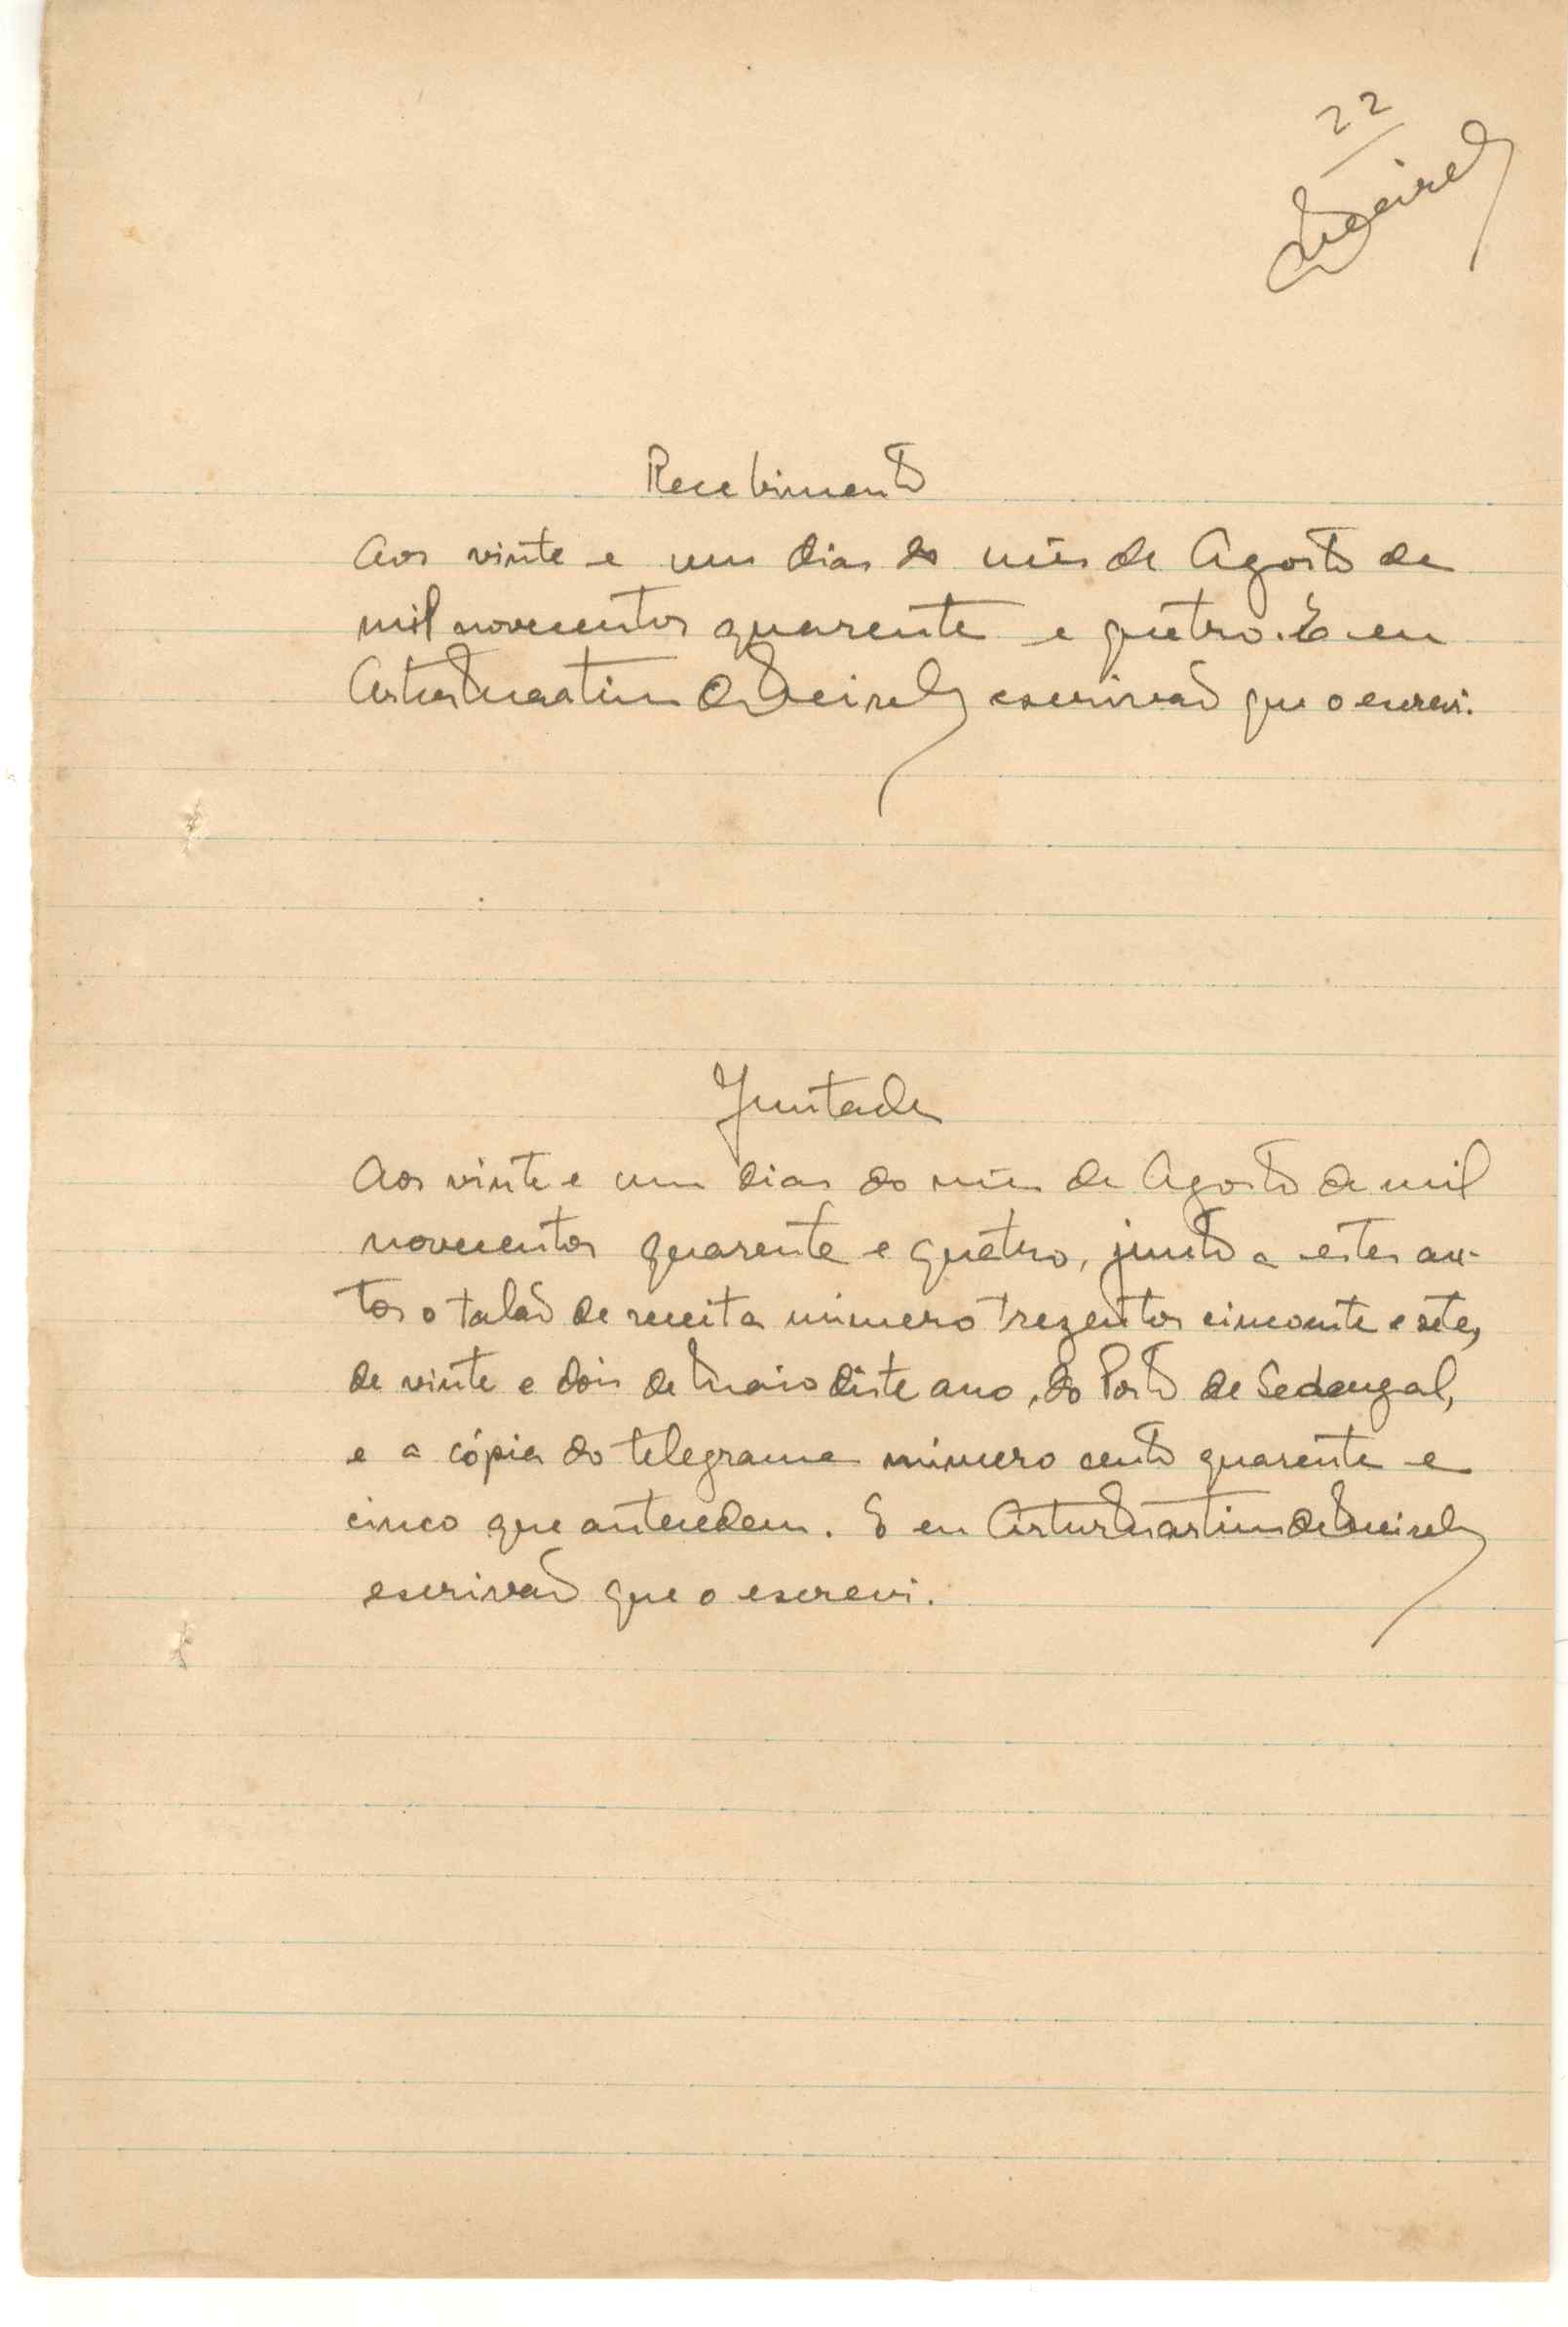 22
Meireles
Recebimento
Aos vinte e um dias do mês de Agosto de
mil novecentos quarenta e quatro. E eu
Artur Martins de Meireles escrivão que o escrevi.
Juntada
Aos vinte e um dias do mês de Agosto de mil
novecentos quarenta e quatro, junto a estes au-
tos o talão de receita número trezentos cincoenta e sete,
de vinte e dois de Maio dêste ano, do Posto de Sedengal,
e a cópia do telegrama número cento quarenta e
cinco que antecedem. E eu Artur Martins de Meireles
escrivão que o escrevi.